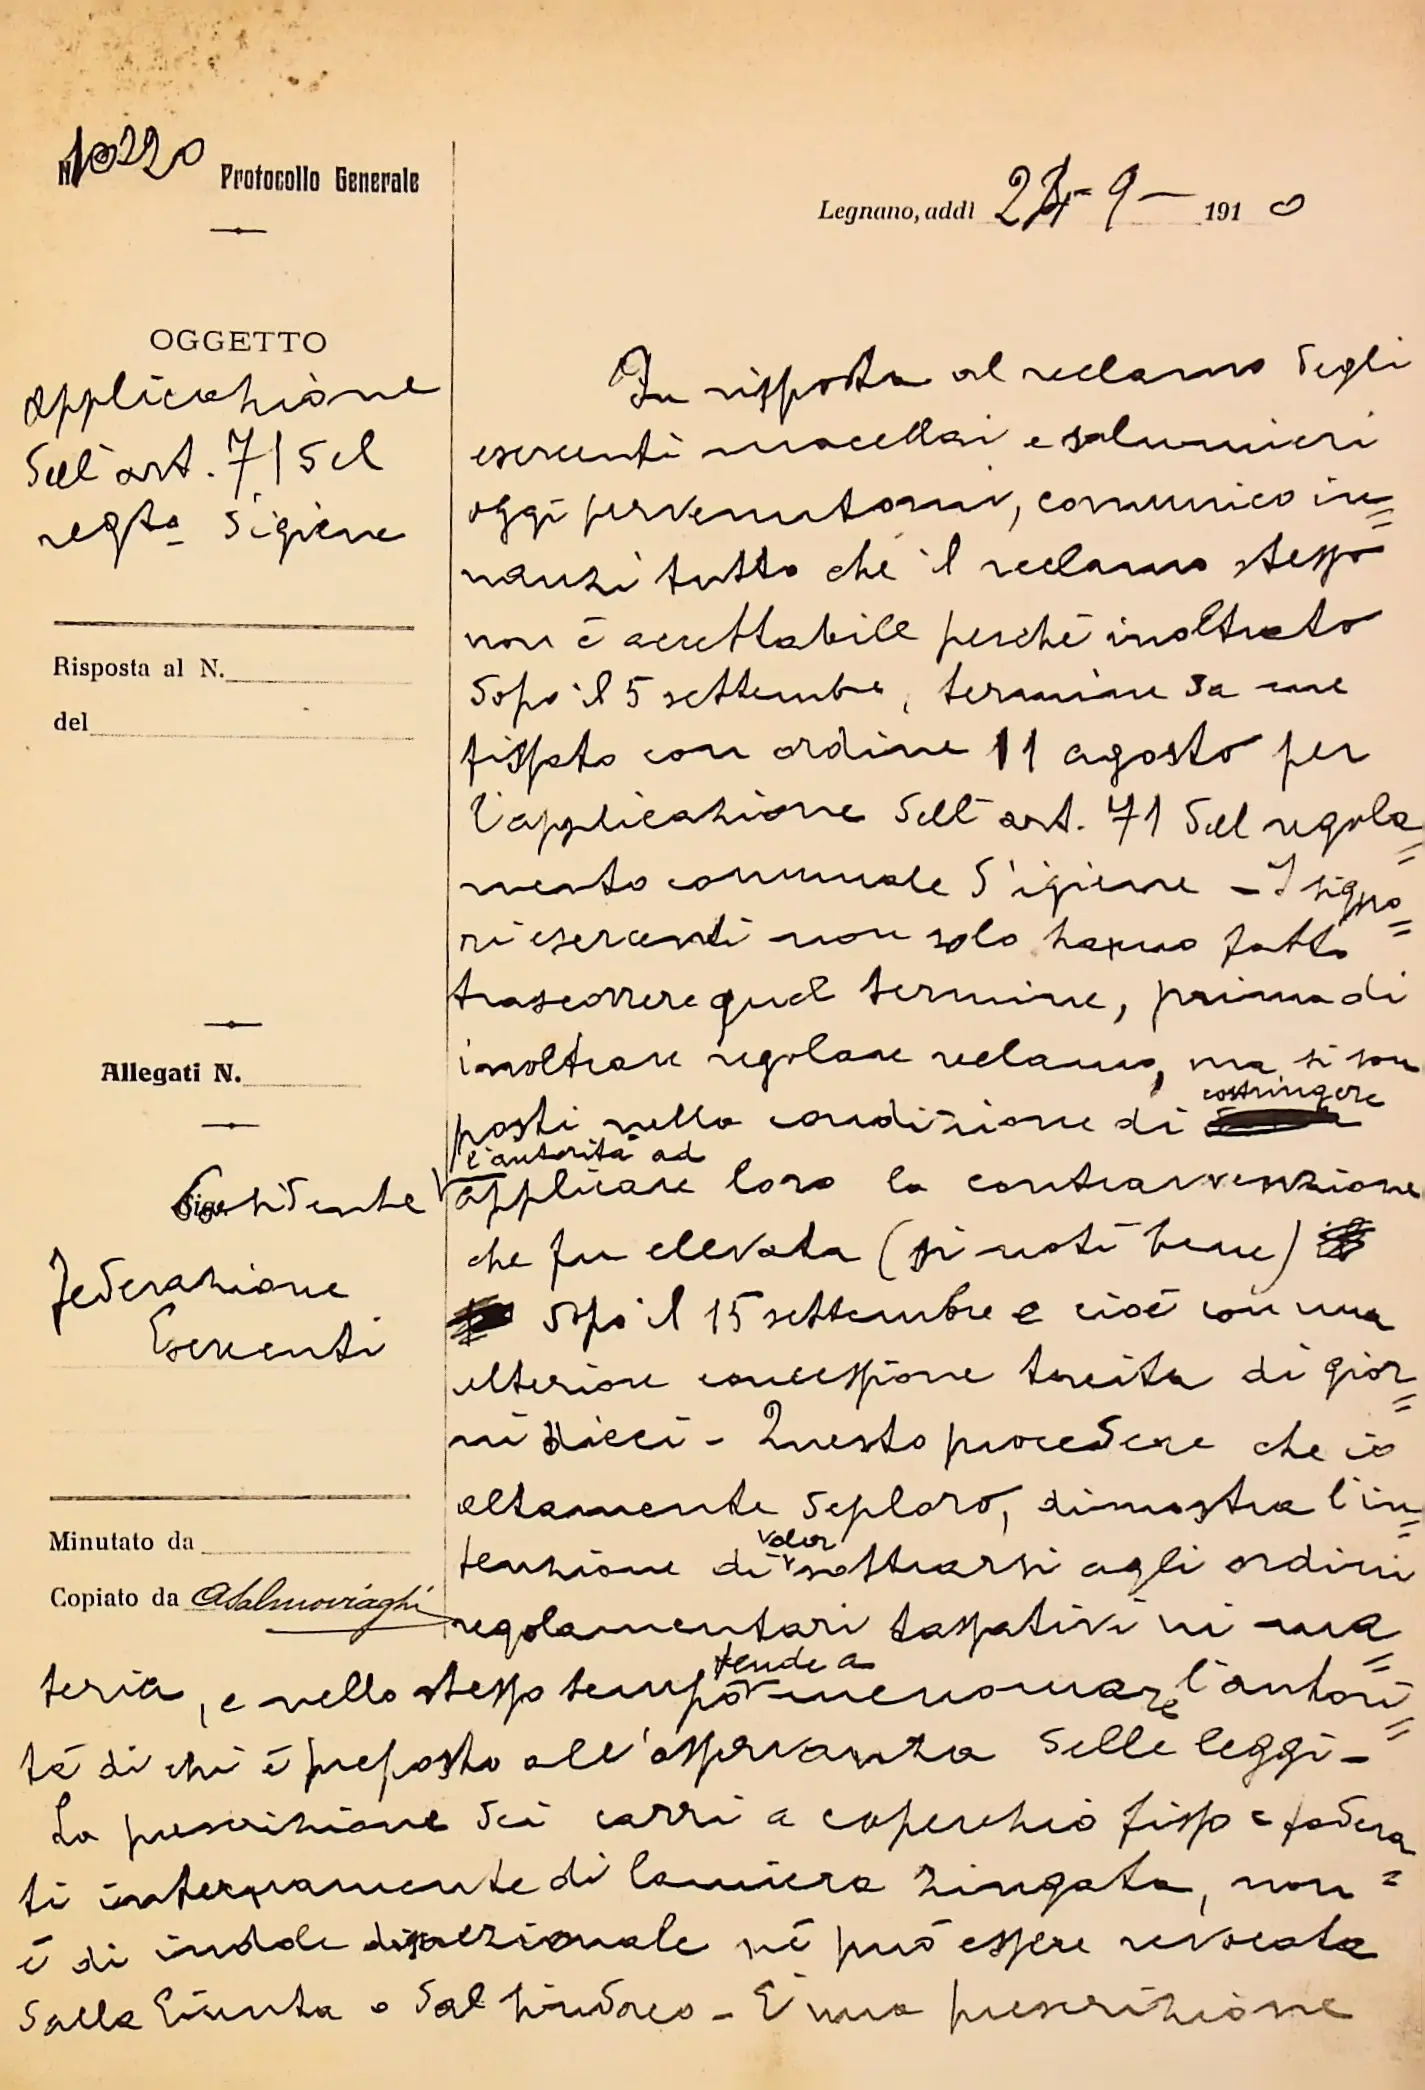 N. 10220 Protocollo Generale
Legnano, addì 24-9- 1910
OGGETTO
Applicazione
dell'art. 71 del
regto d'igiene
Risposta al N.
del
Allegati N.
Federazione
Esercenti
Minutato da
Copiato da ASalmoiraghi
In risposta al reclamo degli
esercenti macellai e salumieri
oggi pervenutomi, comunico in=
nanzi tutto che il reclamo stesso
non è accettabile perchè inoltrato
dopo il 5 settembre, termine da me
fissato con ordine 11 agosto per
l'applicazione dell'art. 71 del regola=
mento comunale d'igiene - I signo=
ri esercenti non solo hanno fatto
trascorrere quel termine, prima di
inoltrare regolare reclamo, ma si son
posti nella condizione di costringere
l'autorità ad
applicare loro la contravvenzione
che fu elevata (si noti bene)
dopo il 15 settembre e cioè con una
ulteriore concessione tacita di gior=
ni dieci - Questo procedere che io
altamente deploro, dimostra l'in=
tenzione di voler sottrarsi agli ordini
regolamentari tassativi in ma=
teria, e nello stesso tempo tende a menomare l'autori=
tà di chi è preposto all'osservanza delle leggi -
La prescrizione dei carri a coperchio fisso e fodera=
ti internamente di lamiera zingata, non
è di indole discrezionale nè può essere revocata
dalla Giunta o dal Sindaco - E' una prescrizione